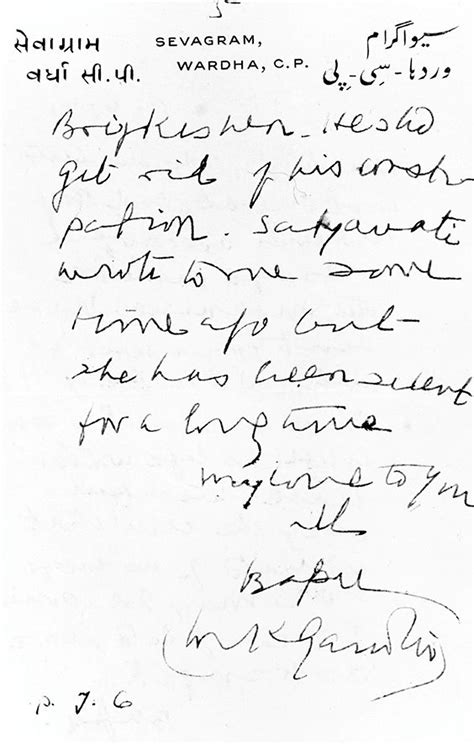 સેવાગ્રામ
વર્ધા સી.પી.
SEVAGRAM,
WARDHA, C.P.
سیواگرام
وردہا - سی - پی
Brijkishen. He shd
get rid of his consti
pation. Satyavati
wrote to me some
time ago but
she has been silent
for a long time
My love to you
all
Bapu
MKGandhi
p. T. 6